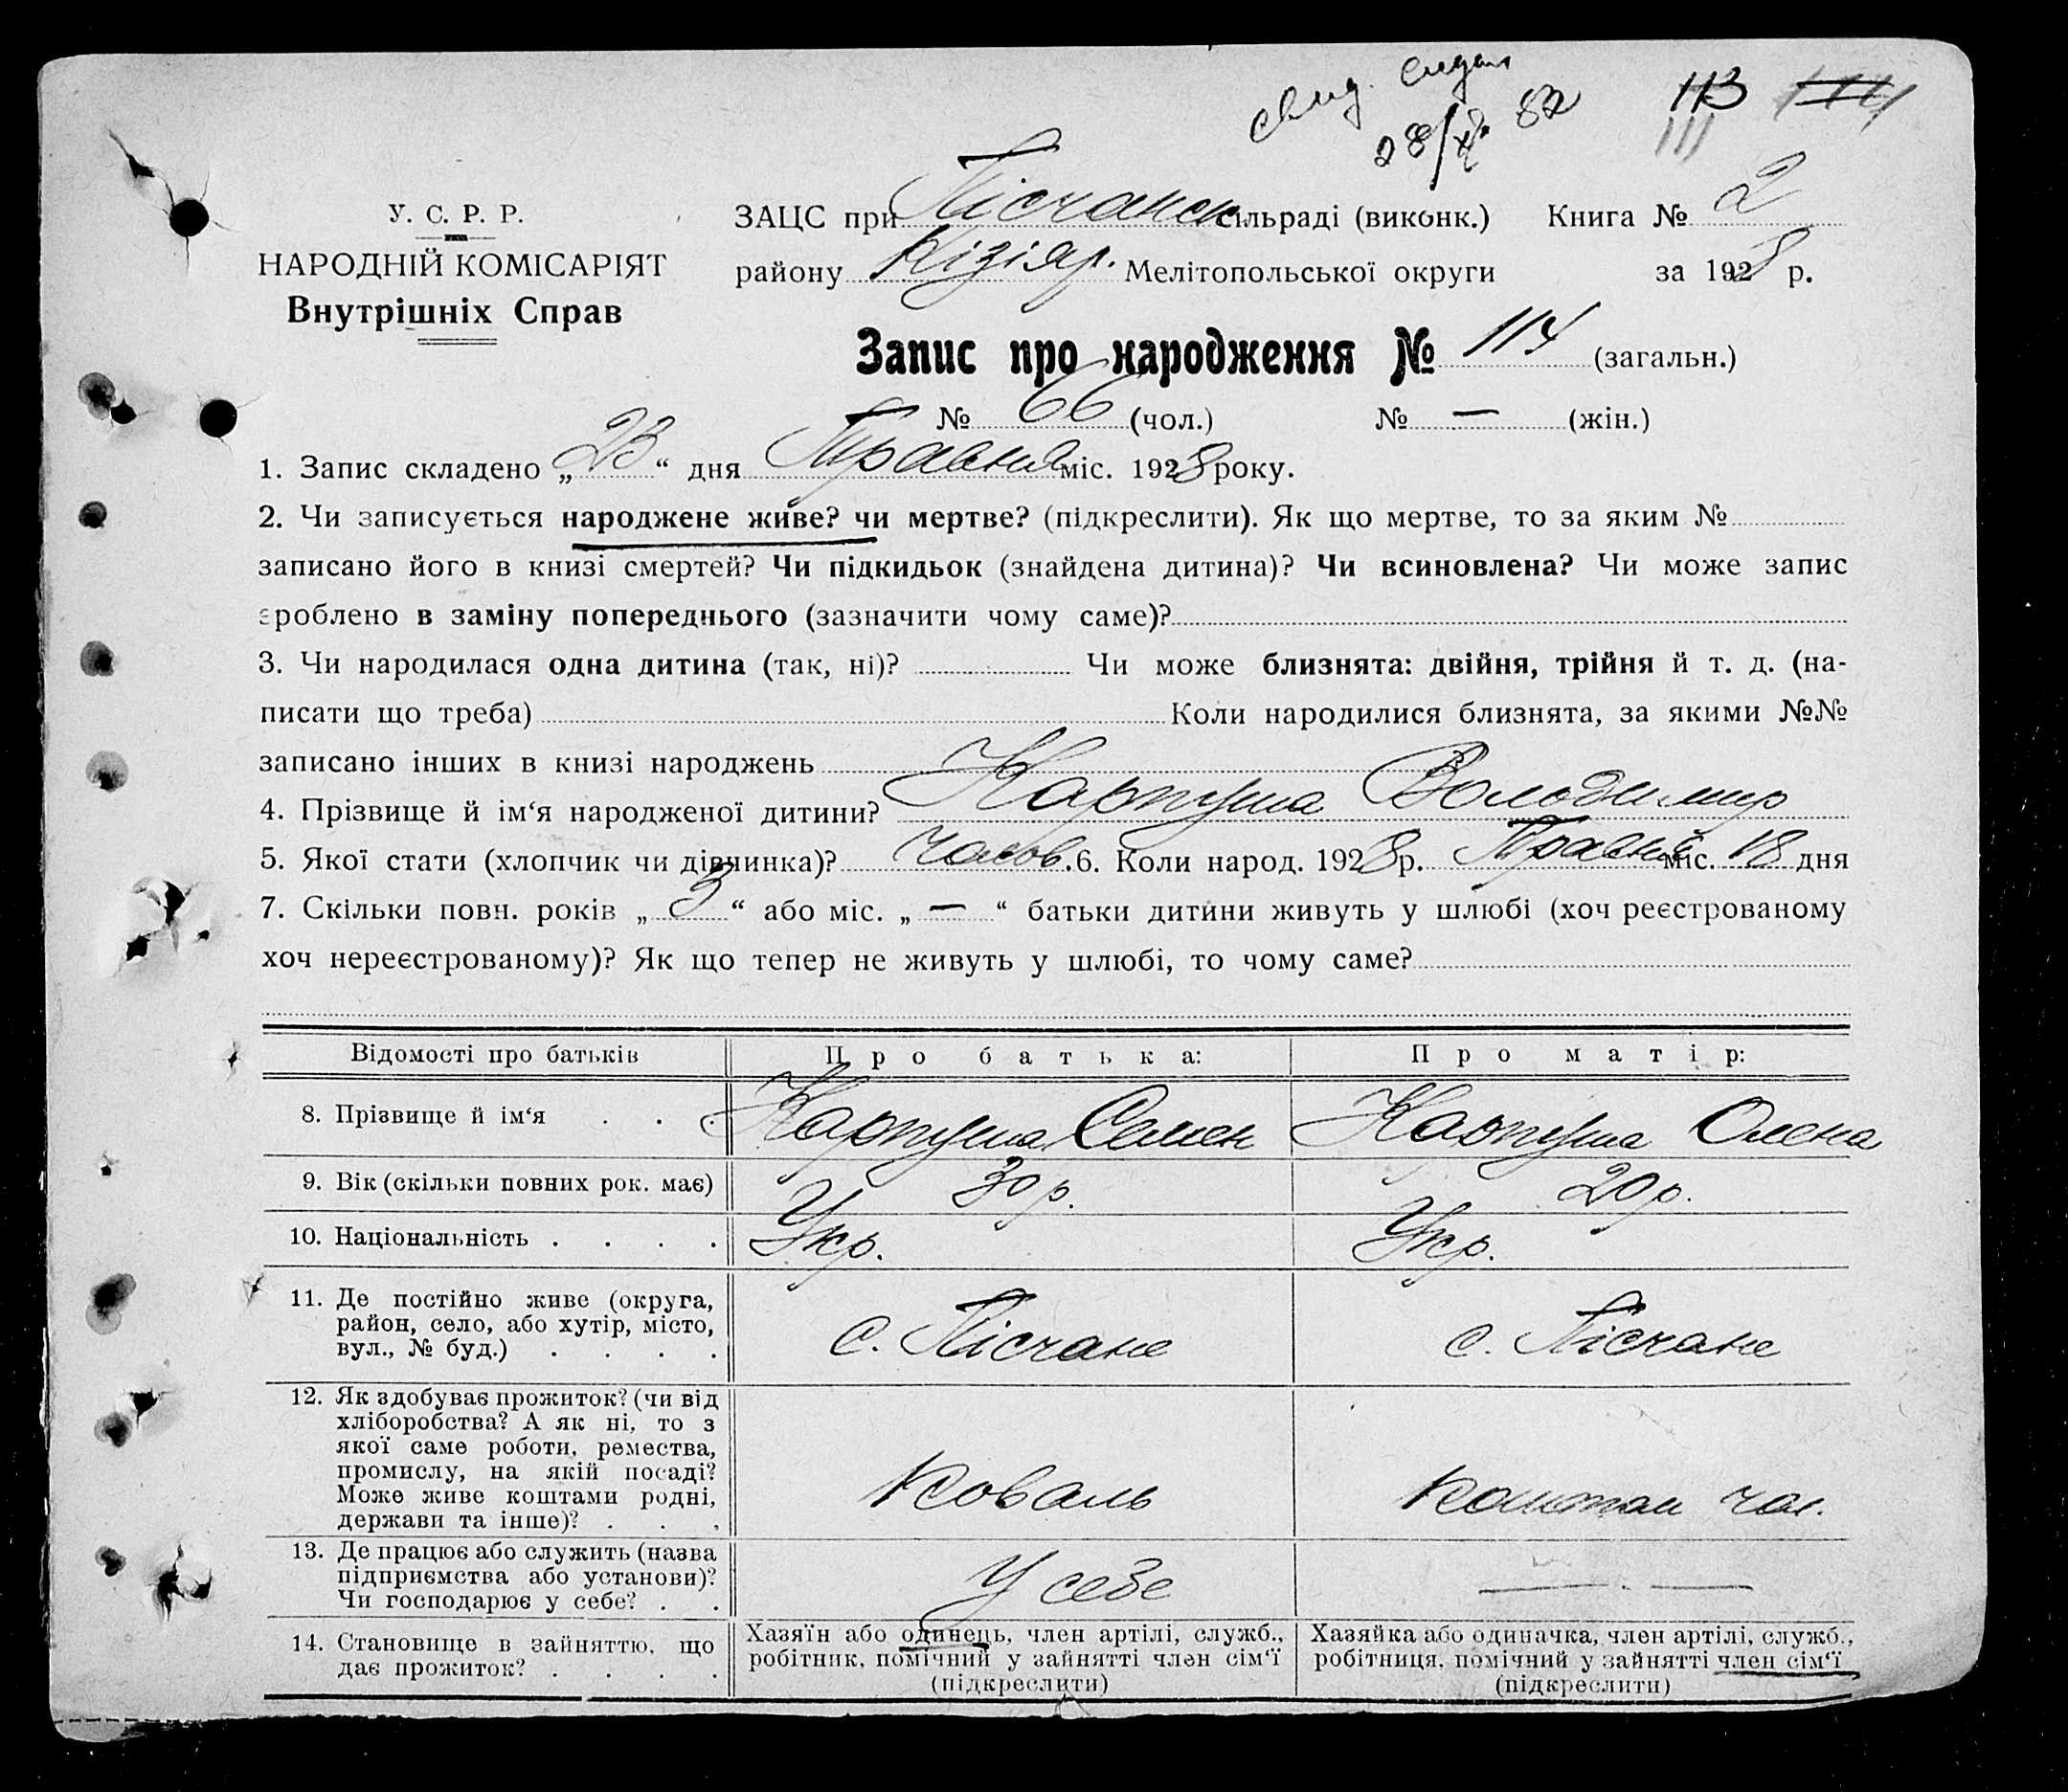 113 114
28/X 82
111
У. С. Р. Р.
НАРОДНІЙ КОМІСАРІЯТ
Внутрішніх Справ
ЗАЦС при Пісчанск сільраді (виконк.) Книга № 2
району Кізіяр. Мелітопольської округи за 1928 р.
Запис про народження № 114 (загальн.)
№ 66 (чол.) № — (жін.)
1. Запис складено „ 23 “ дня Травня міс. 1928 року.
2. Чи записується народжене живе? чи мертве? (підкреслити). Як що мертве, то за яким №
записано його в книзі смертей? Чи підкидьок (знайдена дитина)? Чи всиновлена? Чи може запис
зроблено в заміну попереднього (зазначити чому саме)?
3. Чи народилася одна дитина (так, ні)? Чи може близнята: двійня, трійня й т. д. (на-
писати що треба) Коли народилися близнята, за якими №№
записано інших в книзі народжень
4. Прізвище й ім‘я народженої дитини? Карпуша Володимир
5. Якої стати (хлопчик чи дівчинка)? чолов. 6. Коли народ. 1928 р. Травня міс. 18 дня
7. Скільки повн. років „ 3 “ або міс. „ — “ батьки дитини живуть у шлюбі (хоч реєстрованому
хоч нереєстрованому)? Як що тепер не живуть у шлюбі, то чому саме?
Відомості про батьків Про батька: Про матір:
8. Прізвище й ім‘я . . . Карпуша Семен Карпуша Олена
9. Вік (скільки повних рок. має) 30 р. 20 р.
10. Національність . . . . Укр. Укр.
11. Де постійно живе (округа,
район, село, або хутір, місто,
вул., № буд.) . . . .
с. Пісчане с. Пісчане
12. Як здобуває прожиток? (чи від
хліборобства? А як ні, то з
якої саме роботи, ремества,
промислу, на якій посаді?
Може живе коштами родні,
держави та інше)? . . .
Коваль Коштом чол.
13. Де працює або служить (назва
підприємства або установи)?
Чи господарює у себе? . .
У себе — . —
14. Становище в зайняттю, що
дає прожиток? . . . .
Хазяїн або одинець, член артілі, служб.,
робітник, помічний у зайнятті член сім‘ї
(підкреслити)
Хазяйка або одиначка, член артілі, служб.,
робітниця, помічний у зайнятті член сім‘ї
(підкреслити)